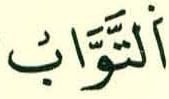 اَلتَّوَّابُ